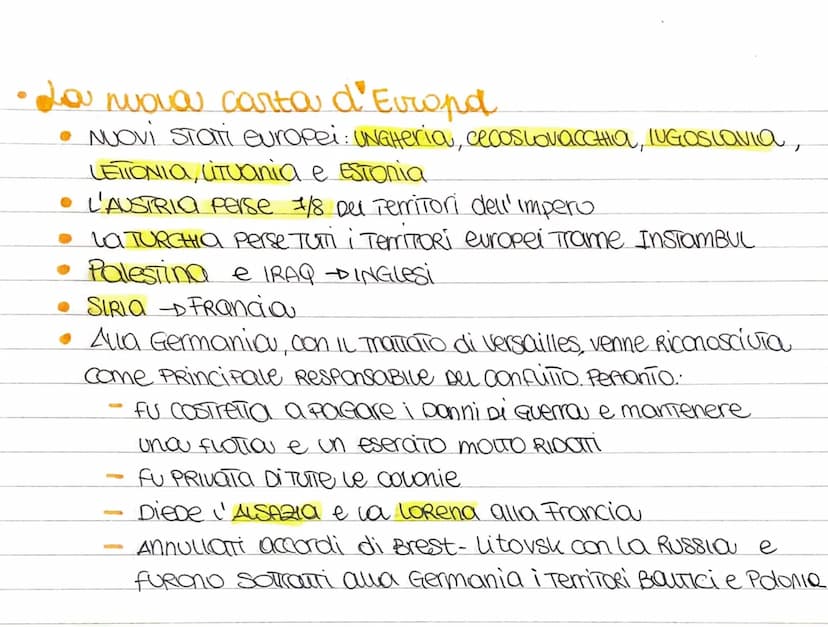 • La nuova carta d'Europa
• NUOVI STATI EUROPEI: UNGHERIA, CECOSLOVACCHIA, IUGOSLAVIA,
LETTONIA, LITUANIA e ESTONIA
• L'AUSTRIA PERSE 7/8 DEI TERRITORI dell'IMPERO
• LA TURCHIA PERSE TUTTI I TERRITORI EUROPEI TRAME INSTAMBUL
• Palestina e IRAQ → INGLESI
• SIRIA → FRANCIA
• Alla Germania, con IL TRATTATO di Versailles, venne RICONOSCIUTA
COME PRINCIPALE RESPONSABILE DEL CONFLITTO. PERTANTO:
- FU COSTRETTA A PAGARE i DANNI DI GUERRA e mantenere
una FLOTTA e UN ESERCITO MOLTO RIDOTTI
- FU PRIVATA DI TUTTE LE COLONIE
- DIEDE L'ALSAZIA e LA LORENA alla FRANCIA
- ANNULLATI accordi di BREST-LITOVSK CON LA RUSSIA e
FURONO SOTTRATTI alla GERMANIA i TERRITORI BALTICI e POLONIA